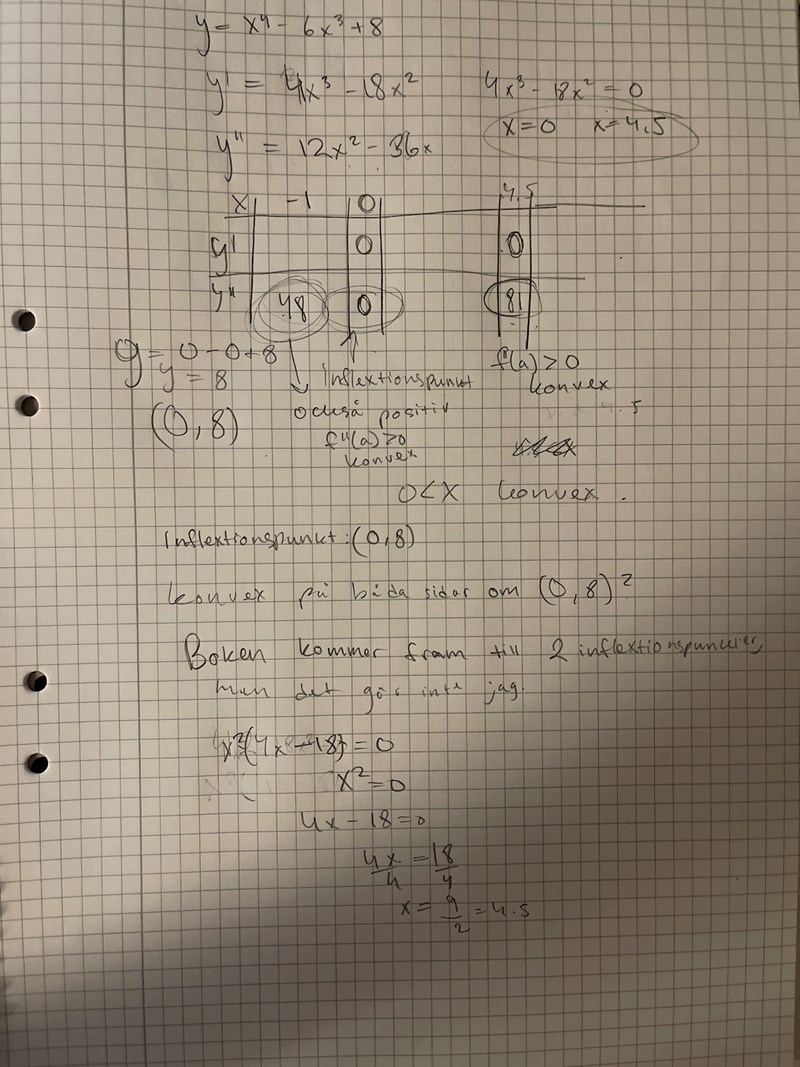 y = x⁴ - 6x³ + 8
y' = 4x³ - 18x² 4x³ - 18x² = 0
x = 0 x = 4,5
y'' = 12x² - 36x
x -1 0 4,5
y' 0 0
y'' 48 0 81
y = 0 - 0 + 8
y = 8
(0,8)
Inflextionspunkt
också positiv
f''(a) > 0
konvex
f(a) > 0
konvex
0 < x konvex.
Inflextionspunkt: (0,8)
konvex på båda sidor om (0,8)?
Boken kommer fram till 2 inflextionspunkter,
men det gör inte jag.
x²(4x - 18) = 0
x² = 0
4x - 18 = 0
4x/4 = 18/4
x = 9/2 = 4.5